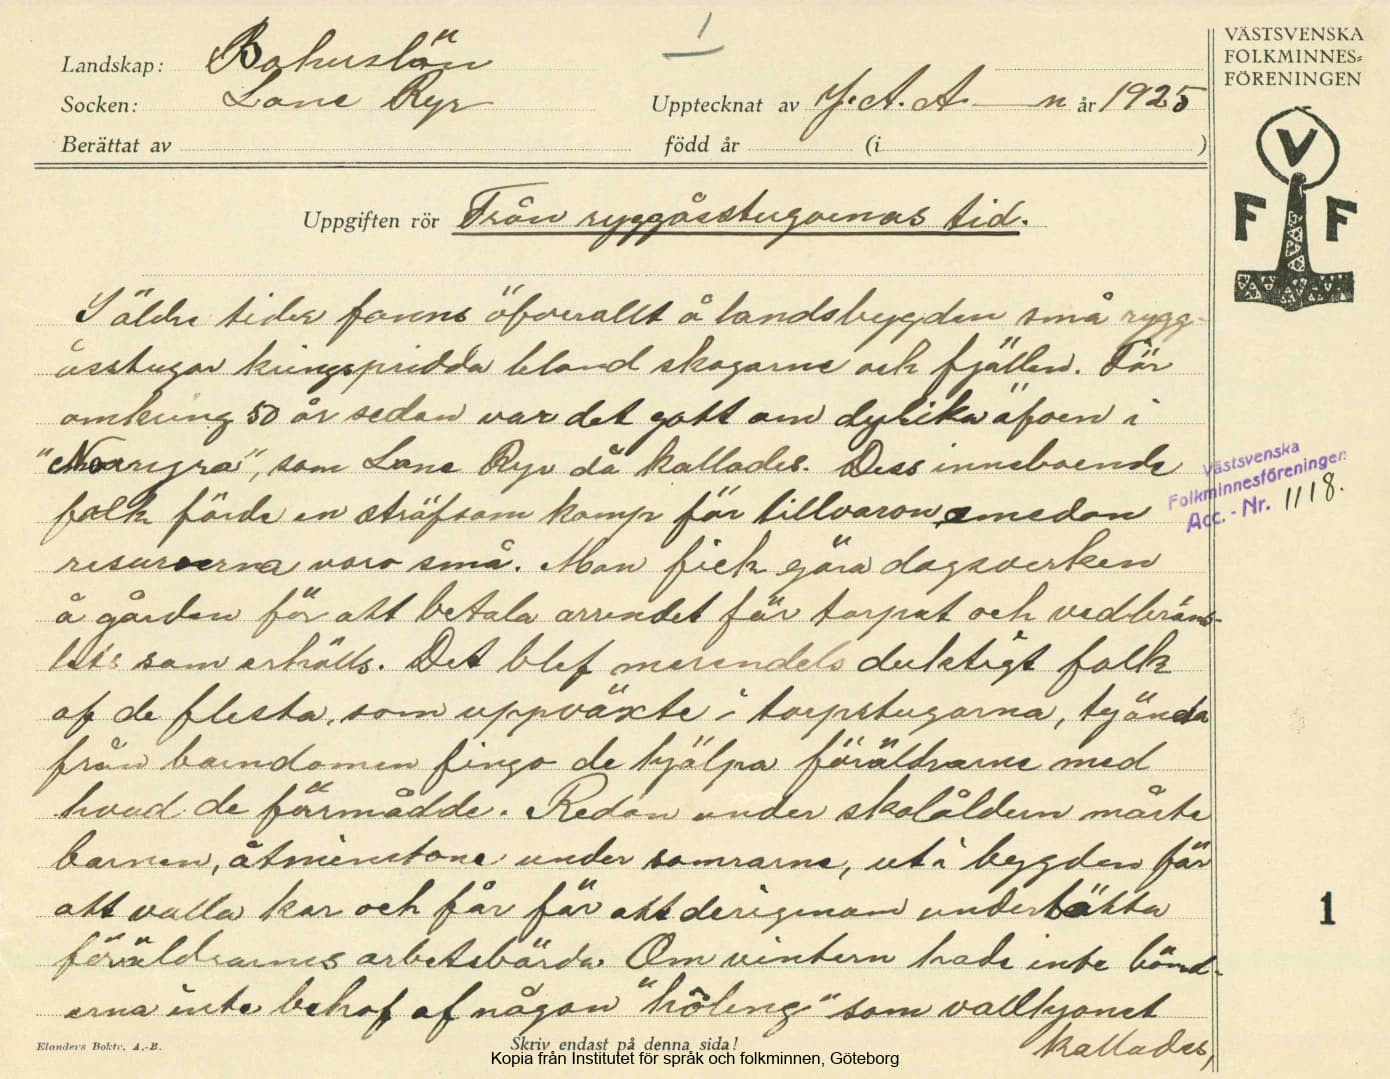 1
VÄSTSVENSKA
FOLKMINNES=
FÖRENINGEN
Landskap: Bohuslän
Socken: Lane Ryr
Upptecknat av J. A. A—n år 1925
Berättat av
född år (i )
V
F F
Uppgiften rör Från ryggåsstugornas tid.
I äldre tider fanns öfverallt å landsbygden små rygg-
åsstugor kringspridda bland skogarne och fjällen. För
omkring 50 år sedan var det gott om dylika äfven i
"Norrryra", som Lane Ryr då kallades. Dess inneboende
folk förde en sträfsam kamp för tillvaron emedan
resurserna voro små. Man fick göra dagsverken
å gården för att betala arrendet för torpet och vedbräns-
lets som erhölls. Det blef merendels duktigt folk
af de flesta, som uppväxte i torpstugorna, ty ända
från barndomen fingo de hjälpa föräldrarne med
hvad de förmådde. Redan under skolåldern måste
barnen, åtminstone under somrarne, ut i bygden för
att valla kor och får för att derigenom underlätta
föräldrarnes arbetsbörda. Om vintern hade inte bönd-
erna inte behof af någon "höling" som vallhjonet
kallades,
Västsvenska
Folkminnesföreningen
Acc. - Nr. 1118.
1
Elanders Boktr. A.-B.
Skriv endast på denna sida!
Kopia från Institutet för språk och folkminnen, Göteborg